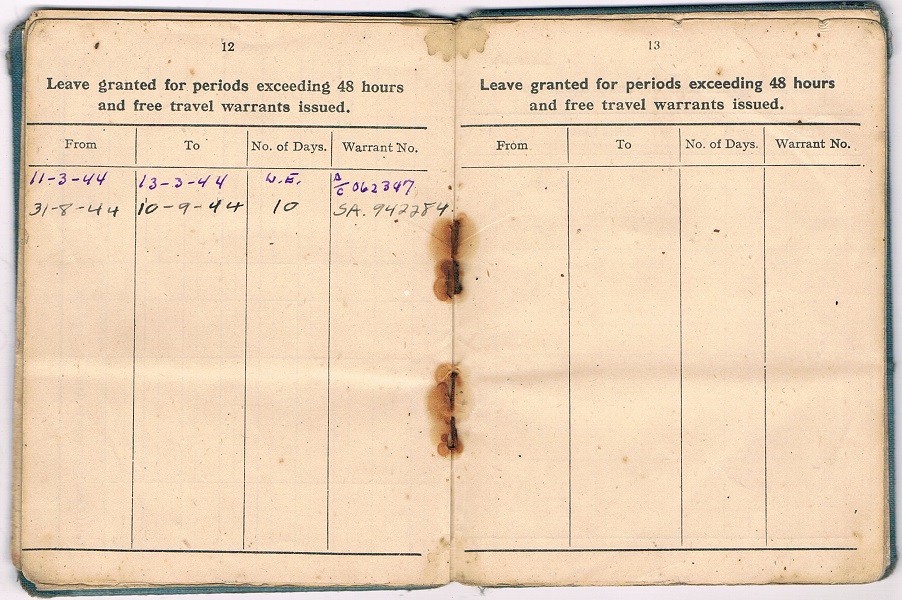 12
Leave granted for periods exceeding 48 hours
and free travel warrants issued.
From To No. of Days. Warrant No.
11-3-44 13-3-44 W.E. A/C 062347
31-8-44 10-9-44 10 SA. 942284
13
Leave granted for periods exceeding 48 hours
and free travel warrants issued.
From To No. of Days. Warrant No.